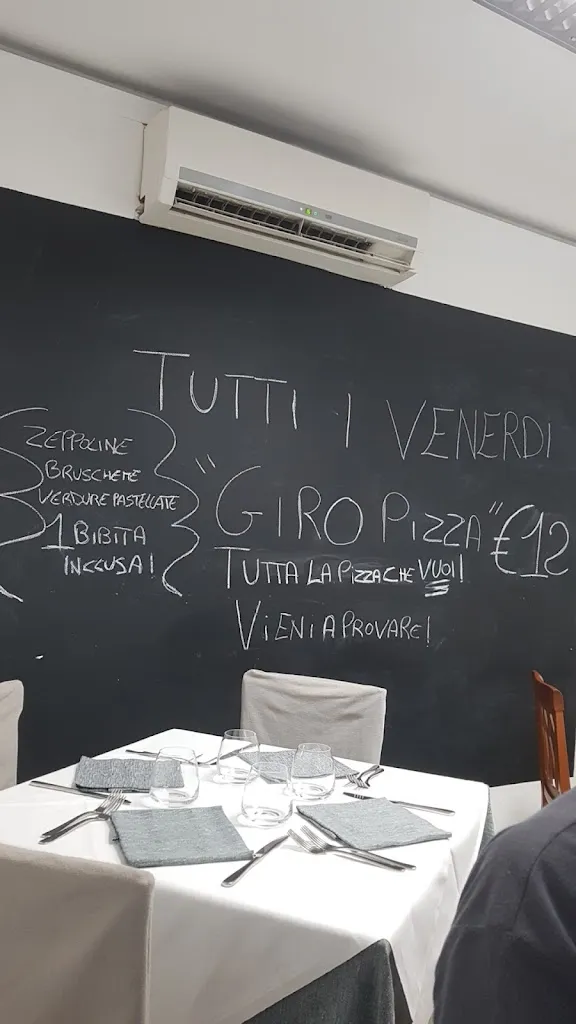 TUTTI I VENERDI
ZEPPOLINE
BRUSCHETTE
VERDURE PASTELLATE
1 BIBITA
INCLUSA!
"GIRO PIZZA" €12
TUTTA LA PIZZA CHE VUOI!
VIENI A PROVARE!